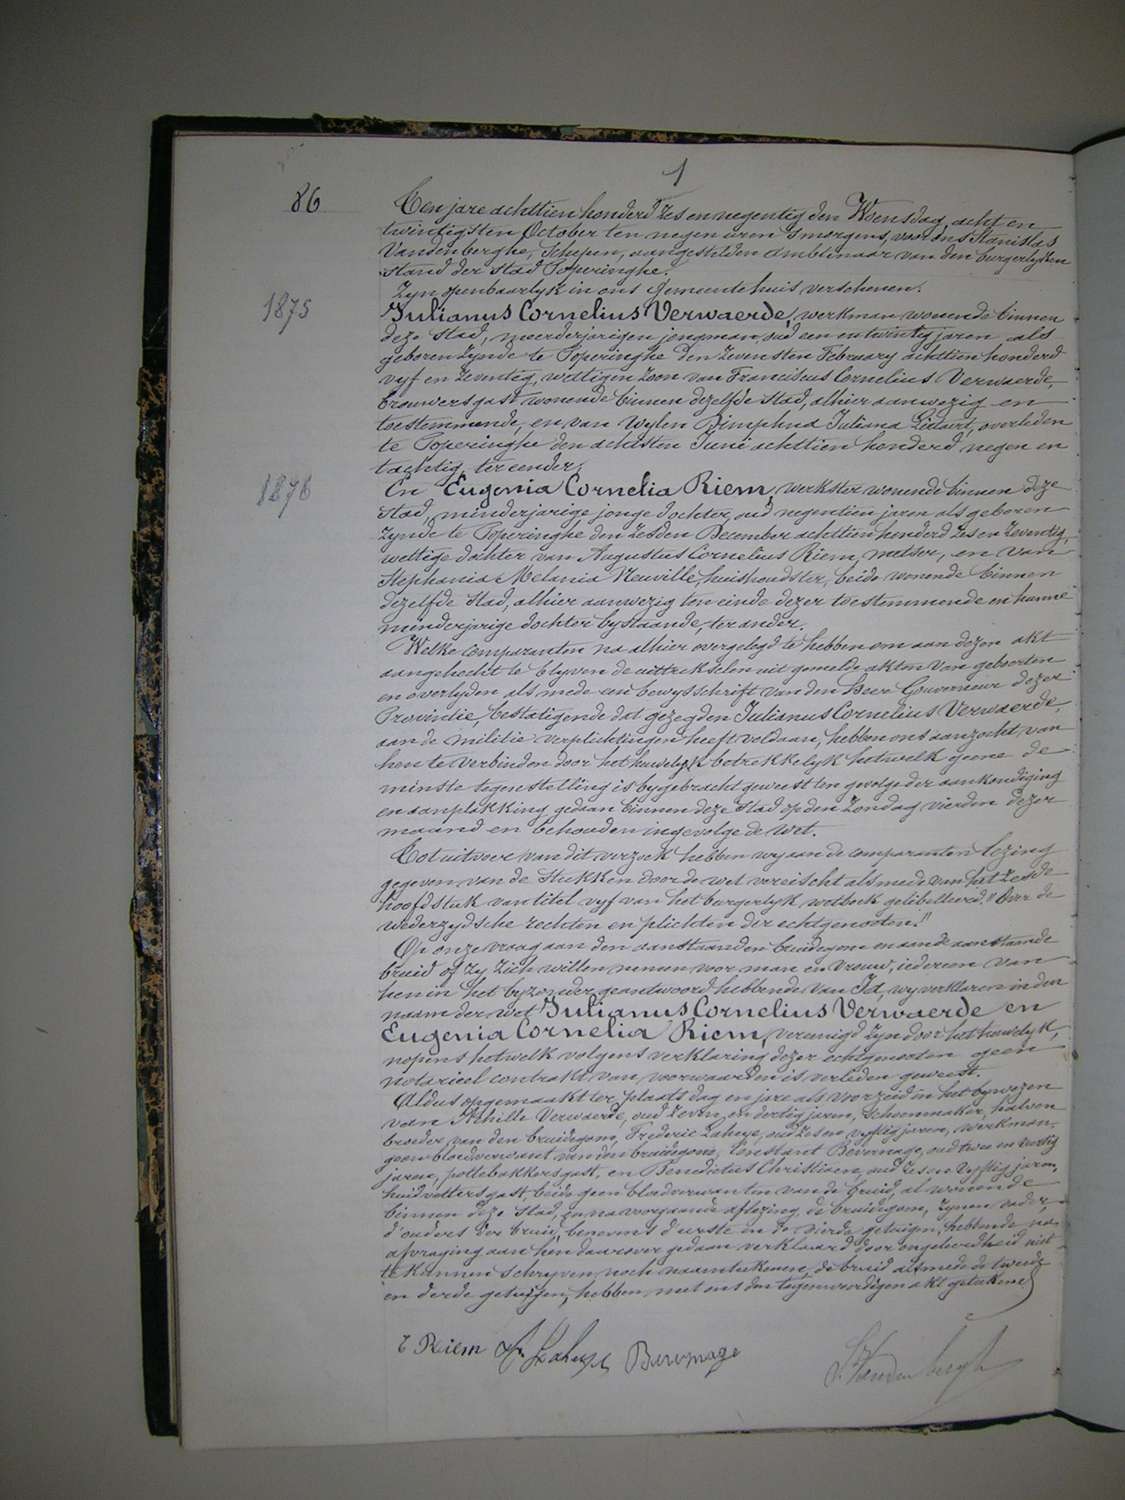 1
86
Ten jare achttien honderd zes en negentig den Woensdag acht en
twintigsten October ten negen uren 's morgens, voor ons Stanislas
Vandenberghe, Schepen, aangestelden ambtenaar van den burgerlyken
stand der stad Poperinghe.
Zyn openbaarlyk in ons gemeentehuis verschenen.
1875
Julianus Cornelius Verwaerde, werkman wonende binnen
deze stad, meerderjarigen jongman, oud een en twintig jaren als
geboren zynde te Poperinghe den zevensten February achttien honderd
vyf en zeventig, wettigen zoon van Franciscus Cornelius Verwaerde,
brouwersgast wonende binnen dezelfde stad, alhier aanwezig en
toestemmende, en van wylen Dimphna Juliana Lietaert, overleden
te Poperinghe den achtsten Juni achttien honderd negen en
tachtig, ter eender;
1876
En Eugenia Cornelia Riem, werkster wonende binnen deze
stad, minderjarige jonge dochter, oud negentien jaren als geboren
zynde te Poperinghe den zesden December achttien honderd zes en zeventig,
wettige dochter van Augustus Cornelius Riem, metser, en van
Stephania Melania Neuville, huishoudster, beide wonende binnen
dezelfde stad, alhier aanwezig ten einde dezer toestemmende en hunne
minderjarige dochter bystaande, ter ander.
Welke comparanten na alhier overgelegd te hebben om aan dezen akt
aangehecht te blyven de uittrekselen uit gemelde akten van geboorten
en overlyden als mede een bewysschrift van den Heer Gouverneur dezer
Provintie, bestatigende dat gezegden Julianus Cornelius Verwaerde,
aan de militie verplichtingen heeft voldaan, hebben ons aanzocht van
hen te verbinden door het huwelyk betrekkelyk hetwelk geene de
minste tegenstelling is bygebracht geweest ten gevolge der aankondiging
en aanplakking gedaan binnen deze stad op den Zondag vierden dezer
maand en behouden ingevolge de wet.
Tot uitvoer van dit verzoek hebben wy aan de comparanten lezing
gegeven van de stukken door de wet vereischt als mede van het zesde
hoofdstuk van titel vyf van het burgerlyk wetboek gelibelleerd: "Over de
wederzydsche rechten en plichten der echtgenooten."
Op onze vraag aan den aanstaanden bruidegom en aan de aanstaande
bruid of zy zich willen nemen voor man en vrouw, iedereen van
hen in het byzonder geantwoord hebbende van Ja, wy verklaren in den
naam der wet Julianus Cornelius Verwaerde en
Eugenia Cornelia Riem, vereenigd zyn door het huwelyk,
nopens hetwelk volgens verklaring dezer echtgenooten geen
notarieel contrakt van voorwaarden is verleden geweest.
Aldus opgemaakt ter plaats dag en jare als voorzeid in het bywezen
van Achille Verwaerde, oud zeven en dertig jaren, schoenmaker, halven
broeder van den bruidegom, Frederic Lahaye, oud zes en vyftig jaren, werkman,
geen bloedverwant van den bruidegom, Constant Bevernage, oud twee en
jaren, pottebakkersgast, en Benedictus Christiaen, oud zes en vyftig jaren,
huidvettersgast, beide geen bloedverwanten van de bruid, al wonende
binnen deze stad, en na voorgaande aflezing de bruidegom, zynen vader,
d'ouders der bruid, benevens d'eerste en de vierde getuigen, hebbende na
afvraging aan hen daarover gedaan verklaard door ongeleerdheid niet
te kunnen schryven noch naamteekenen, de bruid alsmede de tweede
en derde getuigen, hebben met ons den tegenwoordigen akt geteekend
E Riem Fr. Lahaye Bevernage
S. Vandenberghe